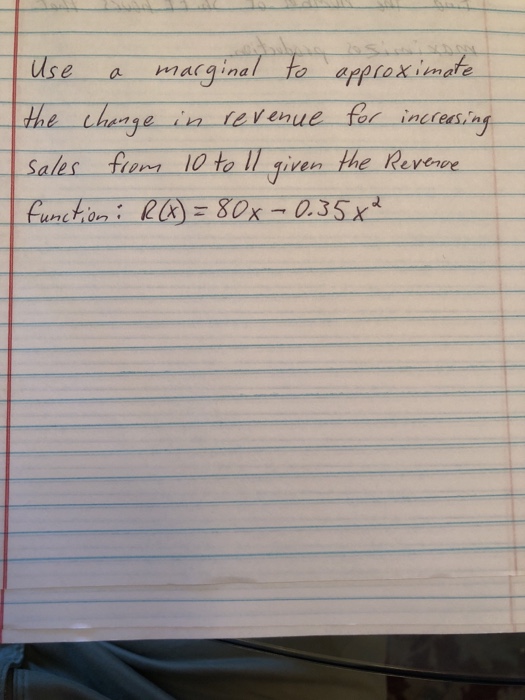 Use a marginal to approximate
the change in revenue for increasing
sales from 10 to 11 given the Revenue
function: R(x) = 80x - 0.35x²